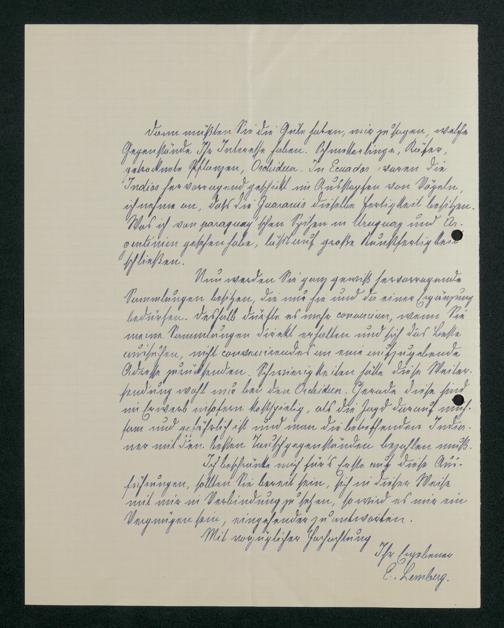 Dann müßten Sie die Güte haben, mir zu sagen, welche
Gegenstände Ihr Interesse haben. Schmetterlinge, Käfer,
getrocknete Pflanzen, Orchideen. In Ecuador waren die
Indios hervorragend geschickt im Ausstopfen von Vögeln,
ich nehme an, daß die Guaranis dieselbe Fertigkeit besitzen.
Was ich von paraguayischen Spitzen in Uruguay und Ar-
gentinien gesehen habe, läßt auf große Kunstfertigkeit
schließen.
Nun werden Sie ganz gewiß hervorragende
Sammlungen besitzen, die nur hie und da einer Ergänzung
bedürfen. Deshalb dürfte es mehr convenieren, wenn Sie
meine Sammlungen direkt erhalten und sich das Beste
aussuchen, nicht convenierendes an eine aufzugebende
Adresse zurücksenden. Schwierigkeiten hätte diese Weiter-
sendung wohl nur bei den Orchideen. Gerade diese sind
im Erwerb insofern kostspielig, als die Jagd darauf müh-
sam und gefährlich ist und man die betreffenden India-
ner mit den besten Tauschgegenständen bezahlen muß.
Ich beschränke mich für's Erste auf diese Aus-
führungen, sollten Sie bereit sein, sich in dieser Weise
mit mir in Verbindung zu setzen, so wird es mir ein
Vergnügen sein, eingehender zu antworten.
Mit vorzüglicher Hochachtung
Ihr ergebener
C. Lemberg.